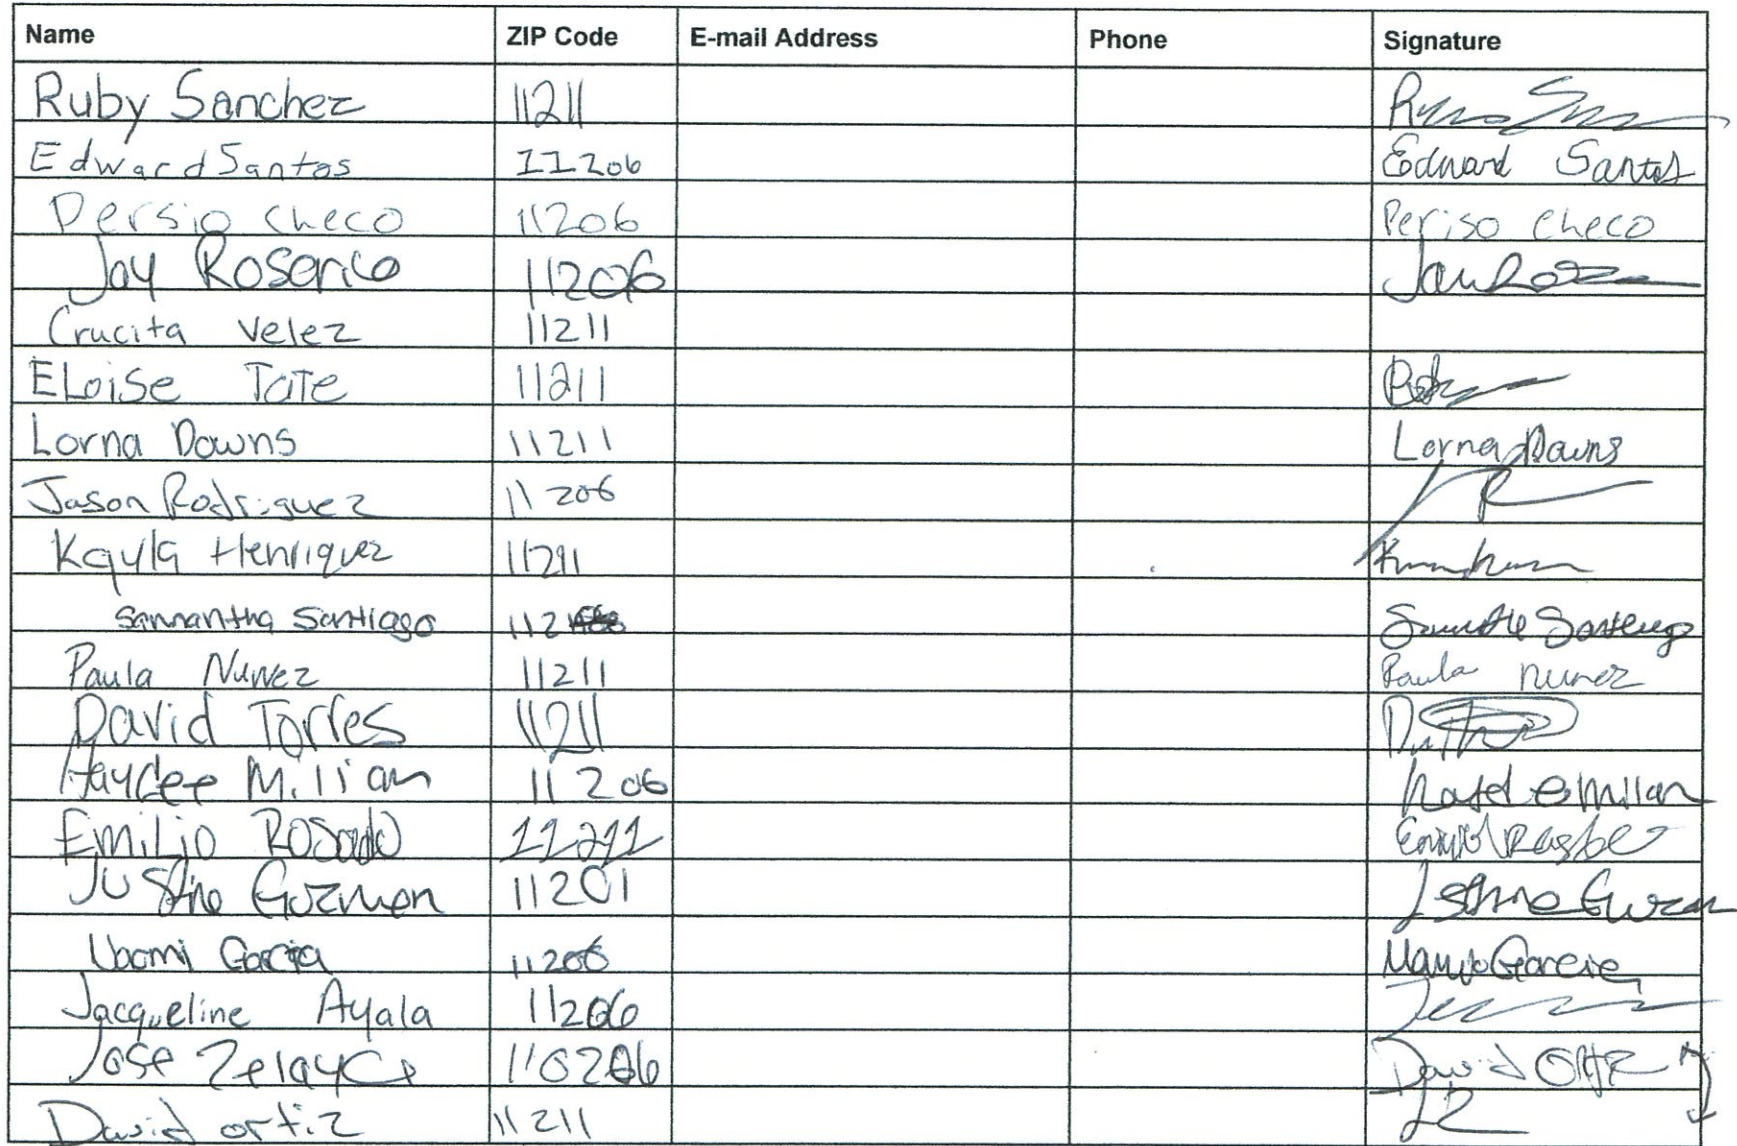 Name ZIP Code E-mail Address Phone Signature
Ruby Sanchez 11211
Edward Santos 11206 Edward Santos
Persio Checo 11206 Periso Checo
Jay Rosario 11206
Crucita Velez 11211
ELoise Tate 11211
Lorna Downs 11211 Lorna Downs
Jason Rodriguez 11206 R
Kayla Henriquez 11211
Samantha Santiago 112
Paula Nunez 11211 Paula nunez
David Torres 11211
Haydee Milian 11206
Emilio Rosado 11211
Justine Guzman 11201
Garcia 11206
Jacqueline Ayala 11206
Jose Zelaya David Ortiz
David ortiz 11211